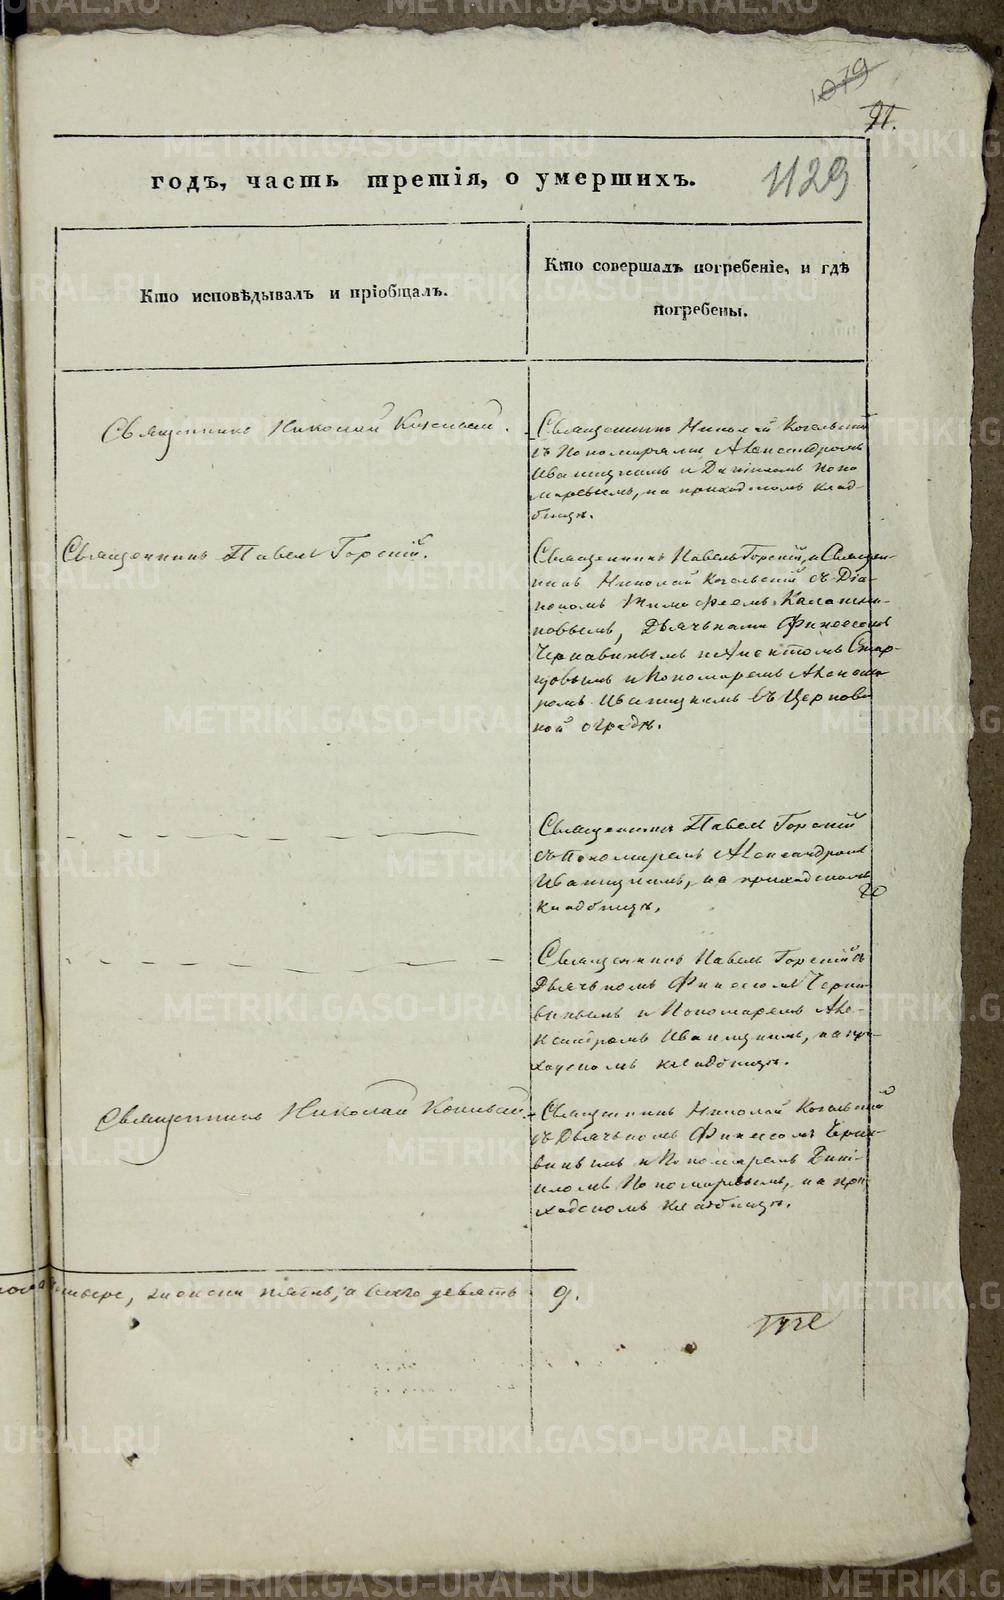 1079
91.
1129
годъ, часть третія, о умершихъ.
Кто исповѣдывалъ и пріобщалъ.
Кто совершалъ погребеніе, и гдѣ
погребены.
Священникъ Николай
Священникъ Николай Когельскій
съ Пономарями Александромъ
Иваницкимъ и Даніиломъ Поно-
маревымъ, на приходскомъ клад-
бищѣ.
Священникъ Павелъ Горскій.
Священникъ Павелъ Горскій, и Священ-
никъ Николай Когельскій съ Діа-
кономъ Тимофеемъ
Дьячьками Финеесомъ
Чернавинымъ и
и Пономаремъ Алексан-
ромъ Иваницкимъ въ Церков-
ной оградѣ.
Священникъ Павелъ Горскій
съ Пономаремъ Александромъ
Иваницкимъ, на приходскомъ
кладбищѣ.
Священникъ Павелъ Горскій съ
Дьячькомъ Финеесомъ Черна-
винымъ и Пономаремъ Але-
ксандромъ Иваницкимъ, на при-
ходскомъ кладбищѣ.
Священникъ Николай
Священникъ Николай Когельскій
съ Дьячькомъ Финеесомъ Черна-
винымъ и Пономаремъ Дані-
иломъ Пономаревымъ, на при-
ходскомъ кладбищѣ.
женска пять, а всего девять 9.
METRIKI.GASO-URAL.RU